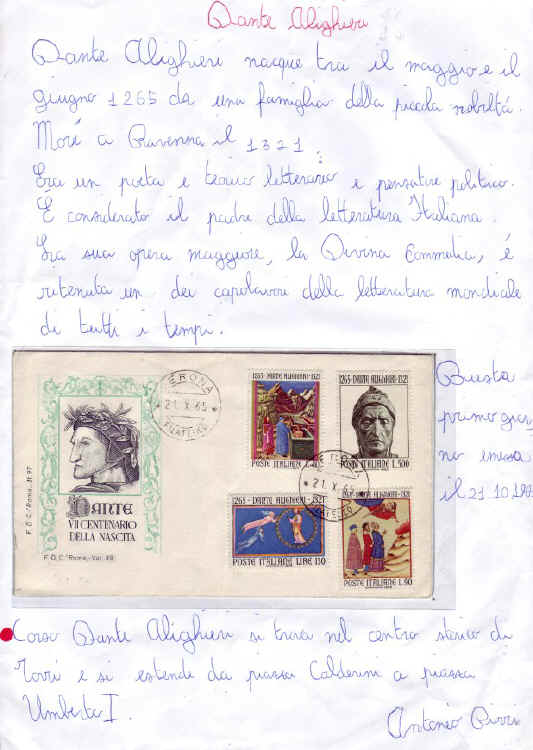 Dante Alighieri
Dante Alighieri nacque tra il maggio e il
giugno 1265 da una famiglia della piccola nobiltá.
Morí a Ravenna il 1321.
Era un poeta e teorico letterario e pensatore politico.
É considerato il padre della letteratura Italiana.
La sua opera maggiore, la Divina Commedia, é
ritenuta un dei capolavori della letteratura mondiale
di tutti i tempi.
DANTE
VII CENTENARIO
DELLA NASCITA
F.D.C. "Roma"
VERONA
21.X.65
1265-DANTE ALIGHIERI-1321
POSTE ITALIANE L.40
1265-DANTE ALIGHIERI-1321
POSTE ITALIANE L.500
21.X.65
1265-DANTE ALIGHIERI-1321
POSTE ITALIANE LIRE 130
DANTE ALIGHIERI-1321
POSTE ITALIANE L.90
Busta
primo gior
no emessa
il 21 10
Corso Dante Alighieri si trova nel centro storico di
e si estende da piazza Calderini a piazza
Umberto I.
Antonio Pirri